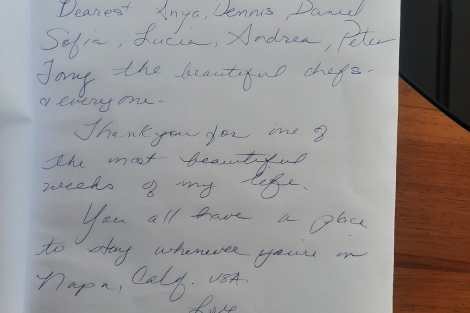 Dearest Anya, Dennis, Daniel
Sofia, Lucia, Andrea, Peter
Tony the beautiful chefs -
& everyone -
Thank you for one of
the most beautiful
weeks of my life.
You all have a place
to stay whenever you're in
Napa, Calif. USA.
Love